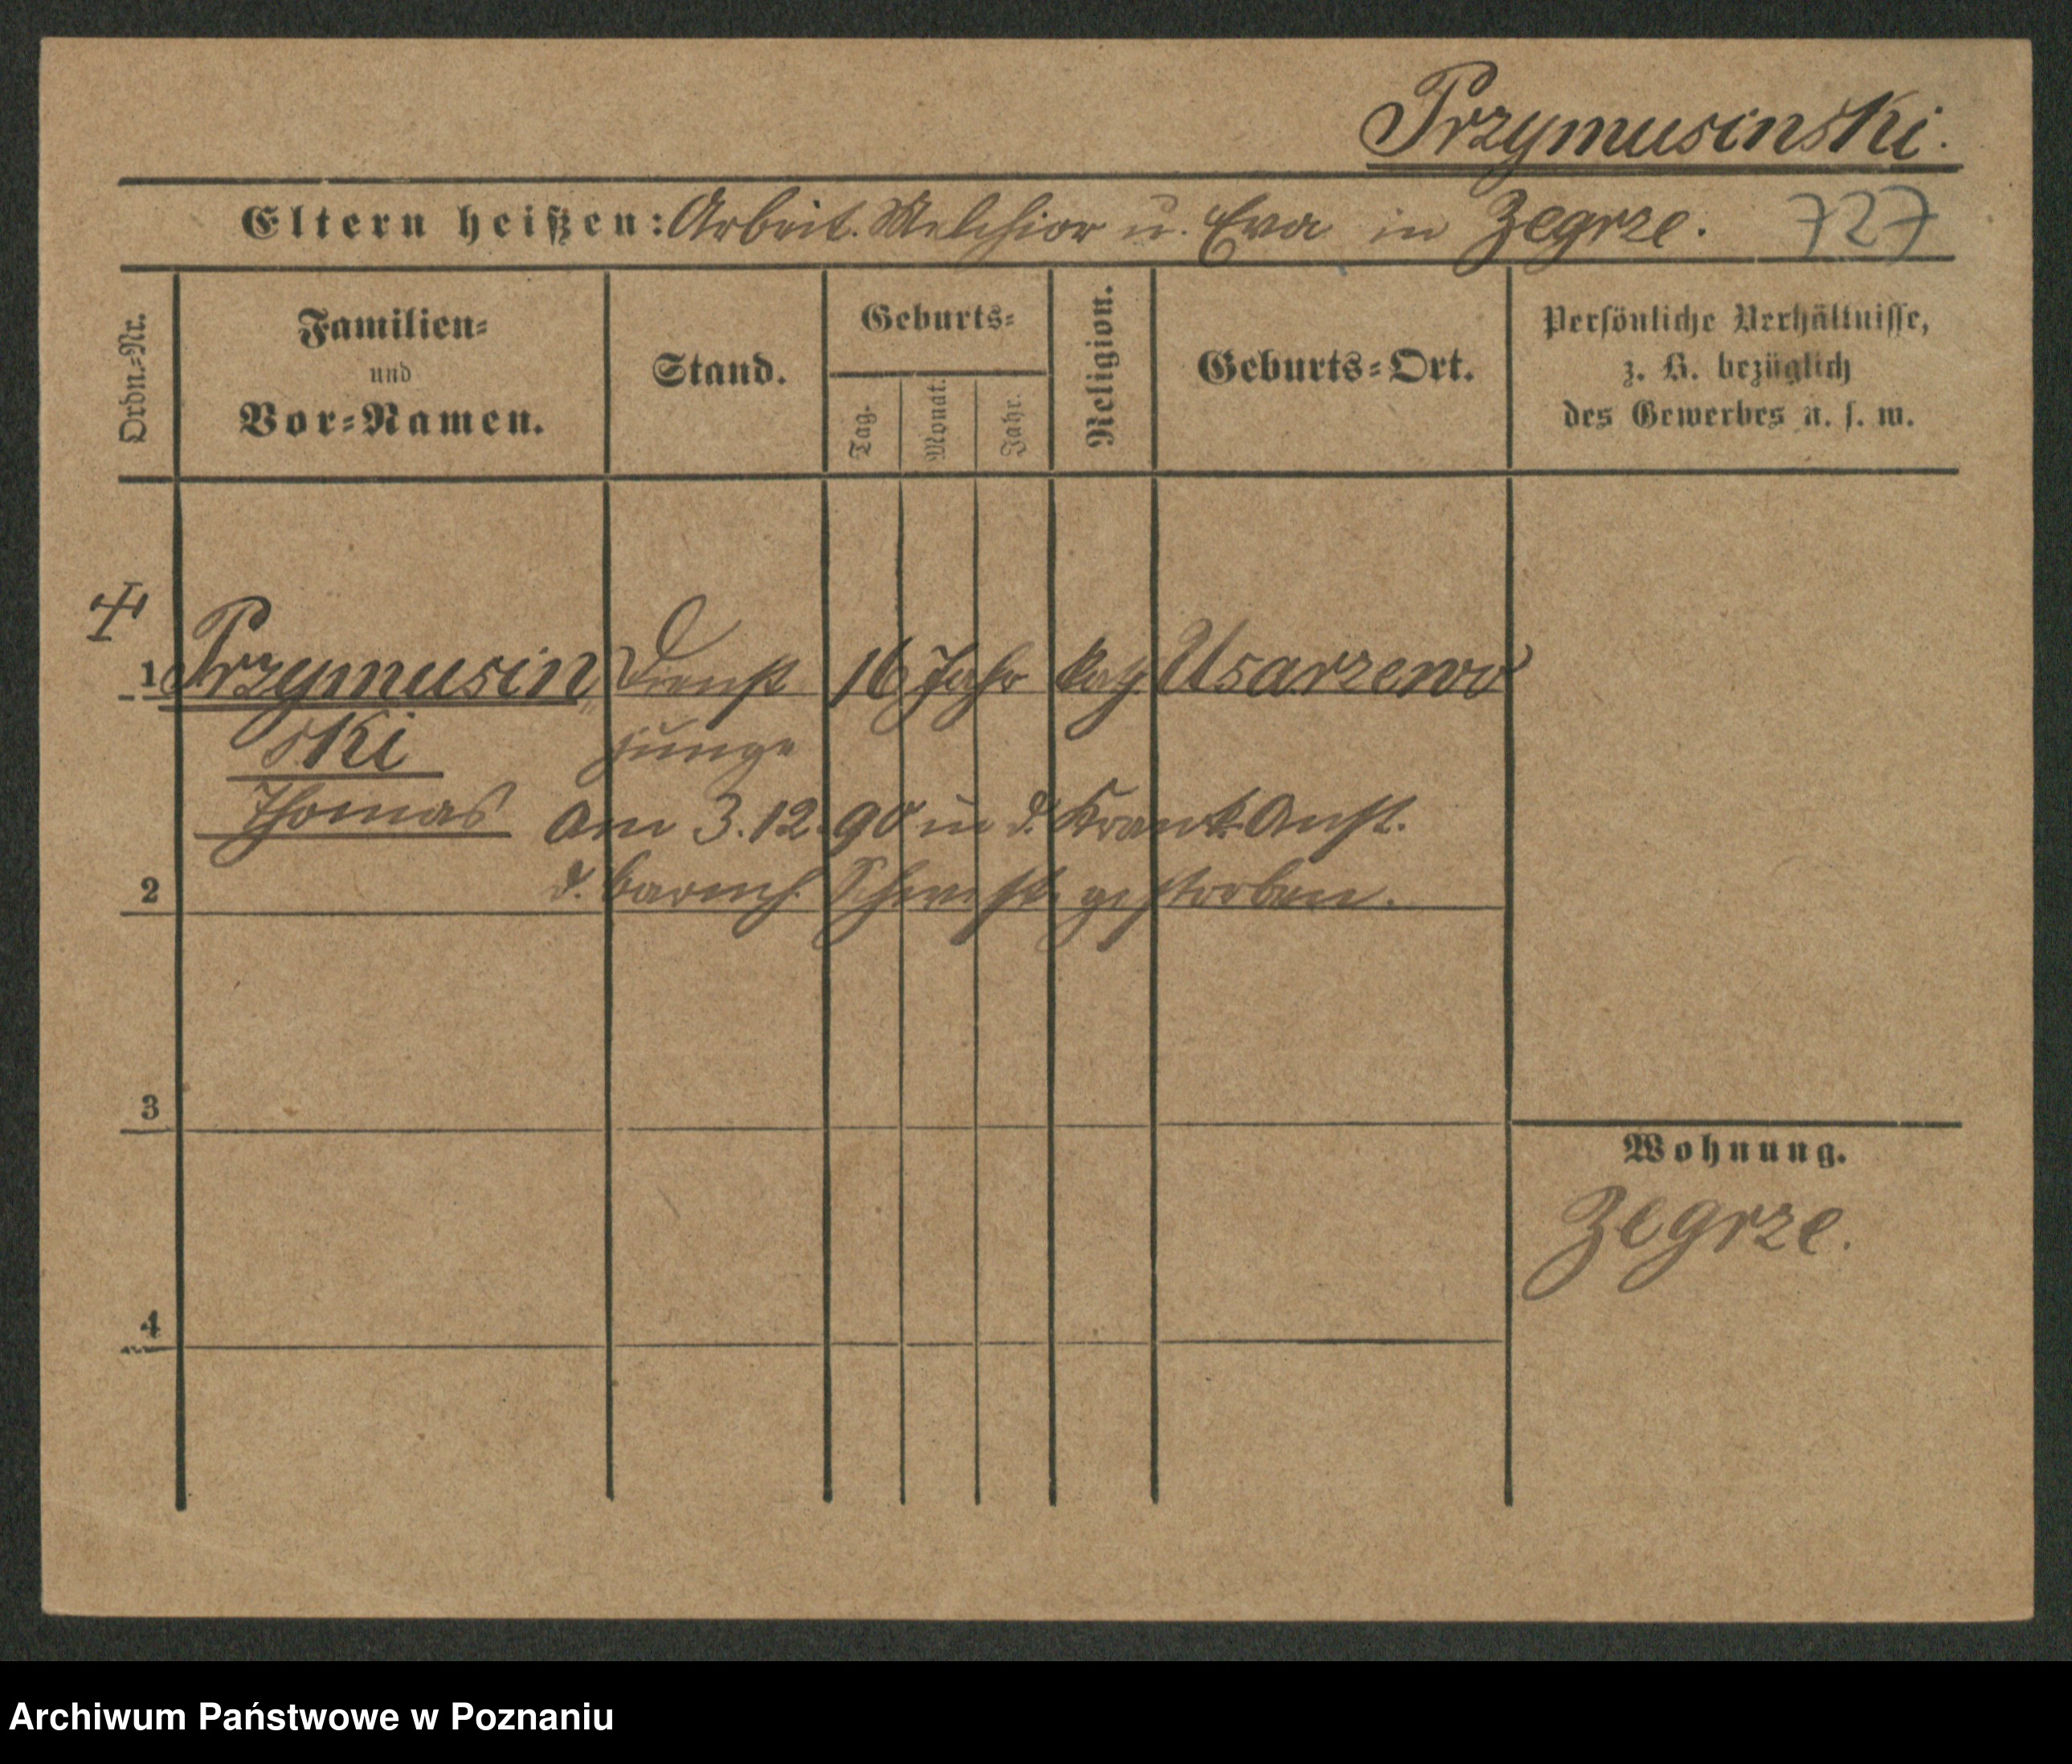 Przymusinski.
Eltern heißen: Arbeit. Melchior u. Eva in Zegrze. 727
Ordn.=Nr.
Familien=
und
Vor=Namen.
Stand.
Geburts=
Tag.
Monat.
Jahr.
Religion.
Geburts=Ort.
Persönliche Verhältnisse,
z. B. bezüglich
des Gewerbes u. s. w.
1 Przymusin Dienst 16 Jahr kath Usarzewo
ski junge
Thomas am 3.12.90 in d. Krank. Anst.
2 d. barmh. Schwest. gestorben.
3
Wohnung.
Zegrze.
4
Archiwum Państwowe w Poznaniu